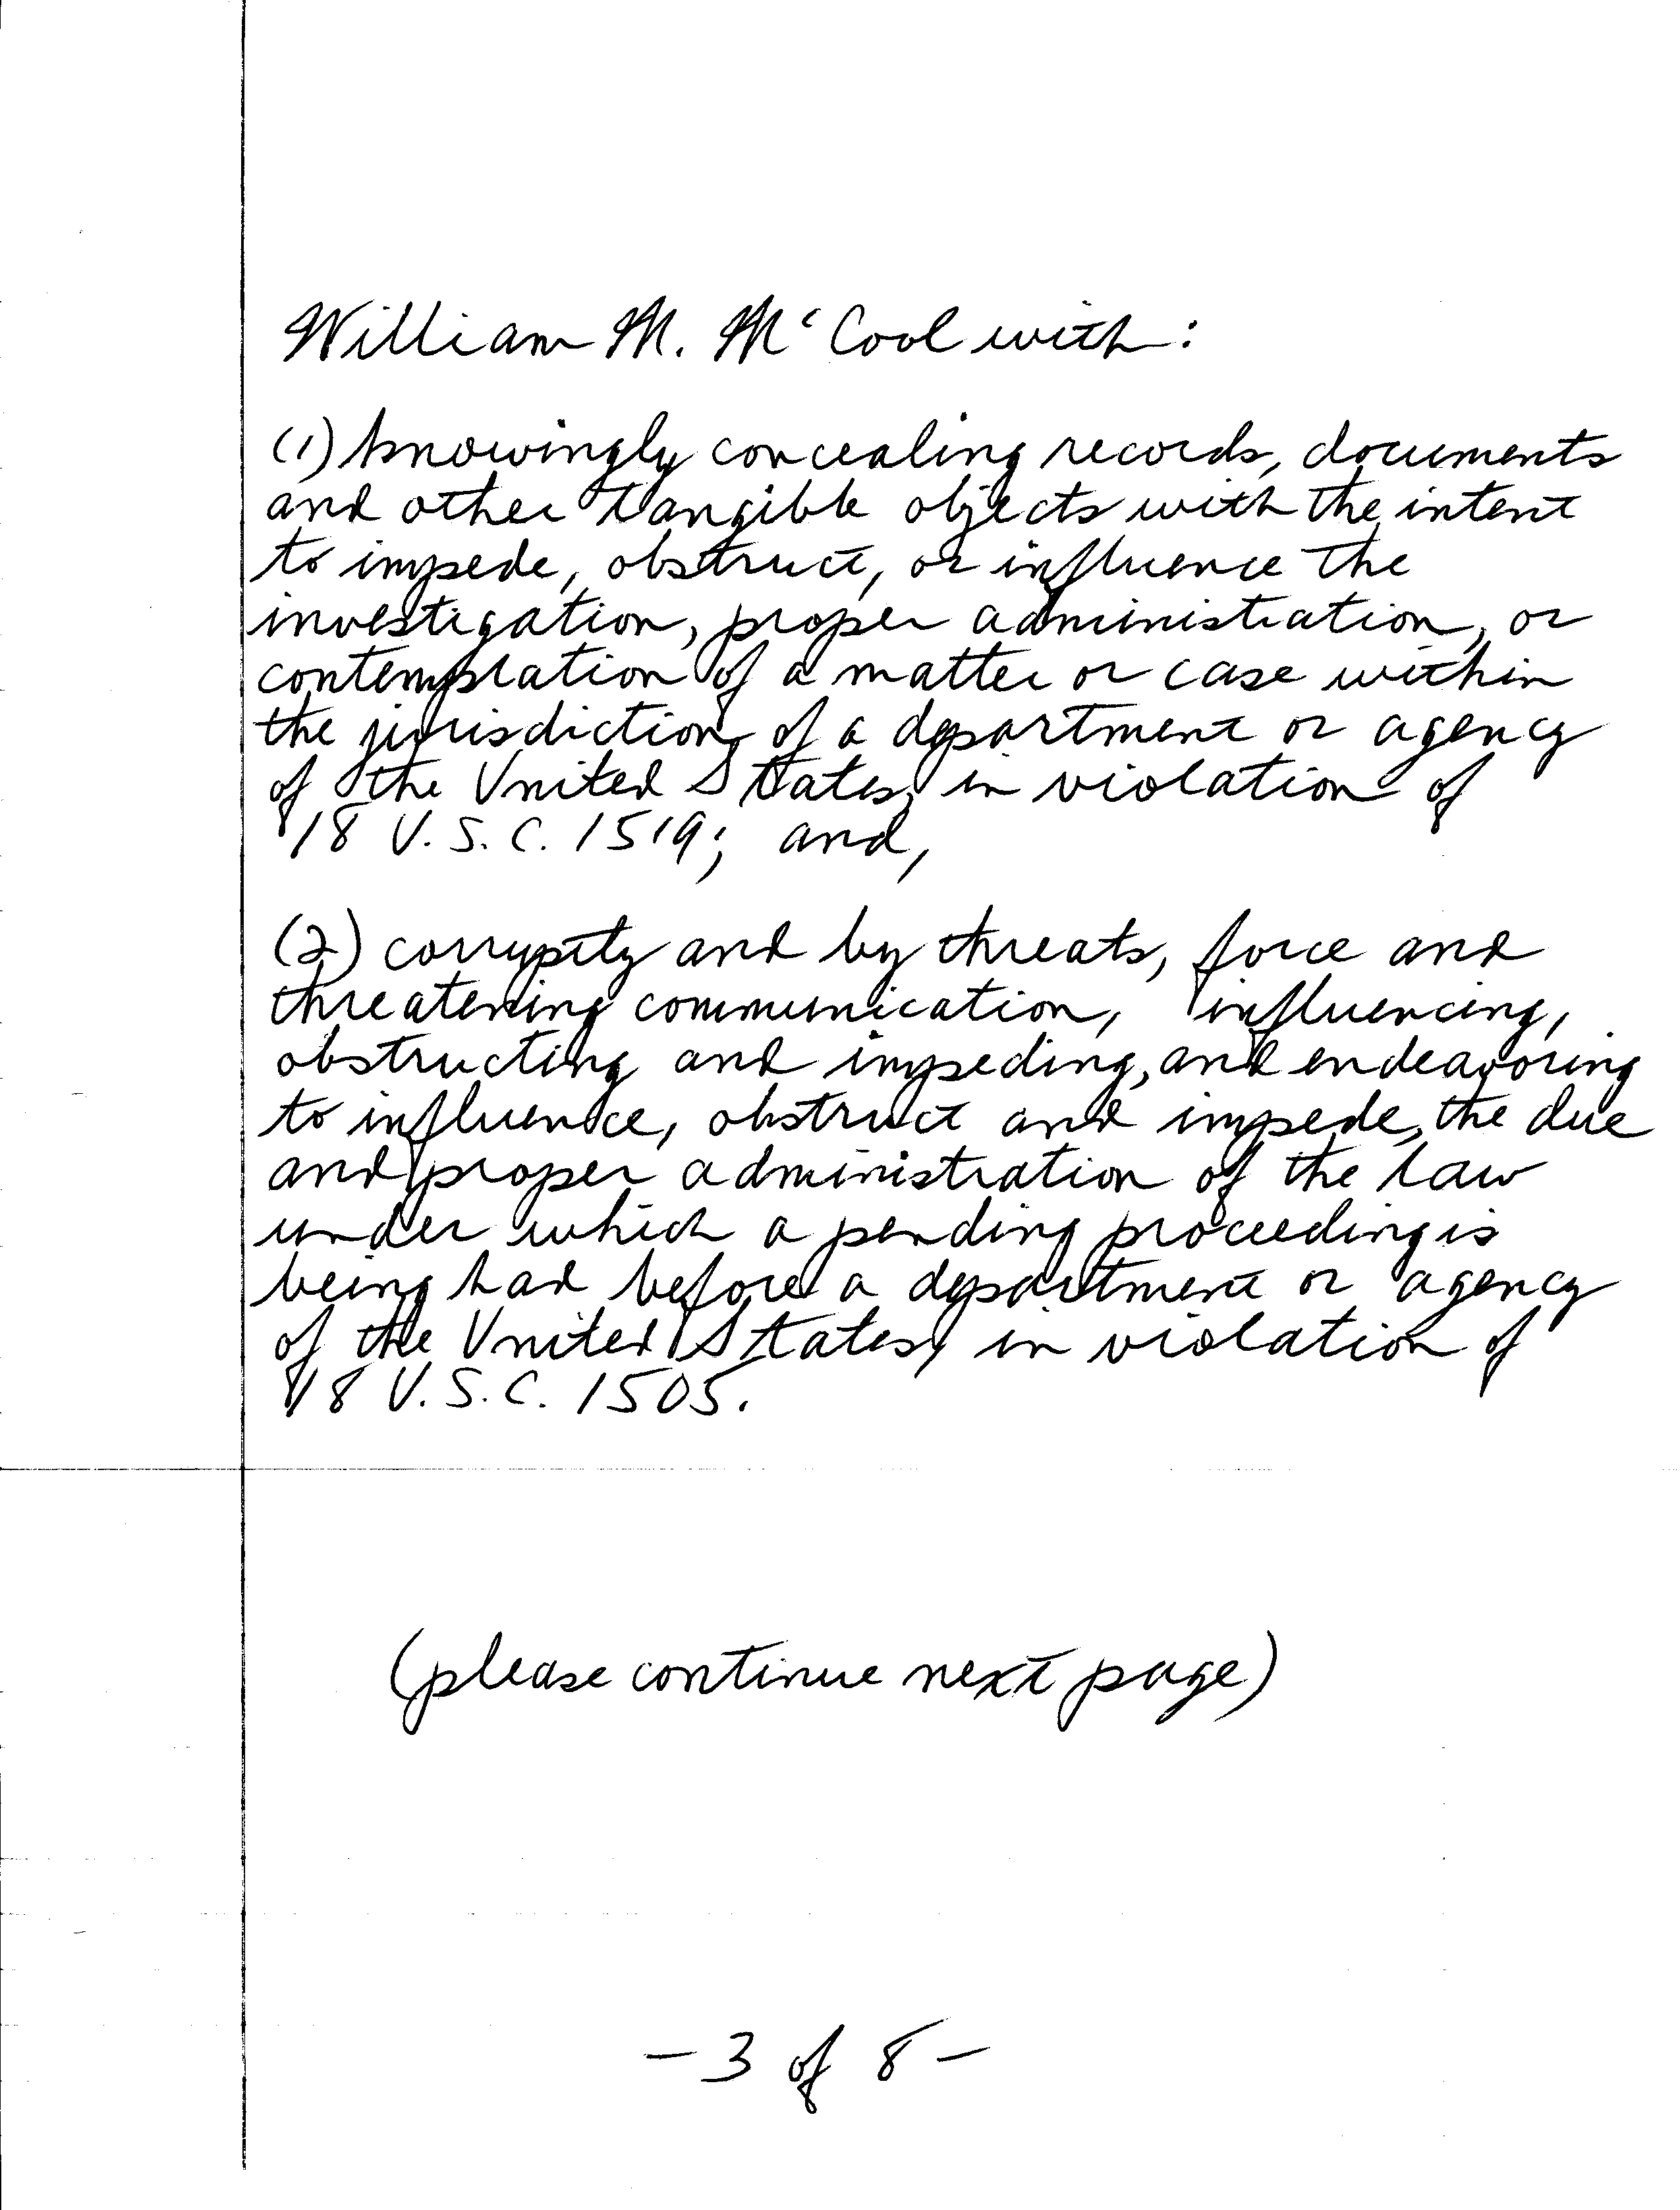 William M. McCool with:
(1) knowingly concealing records, documents
and other tangible objects with the intent
to impede, obstruct, or influence the
investigation, proper administration, or
contemplation of a matter or case within
the jurisdiction of a department or agency
of the United States, in violation of
18 U.S.C. 1519; and,
(2) corruptly and by threats, force and
threatening communication, influencing,
obstructing and impeding, and endeavoring
to influence, obstruct and impede, the due
and proper administration of the law
under which a pending proceeding is
being had before a department or agency
of the United States, in violation of
18 U.S.C. 1505.
(please continue next page)
- 3 of 8 -